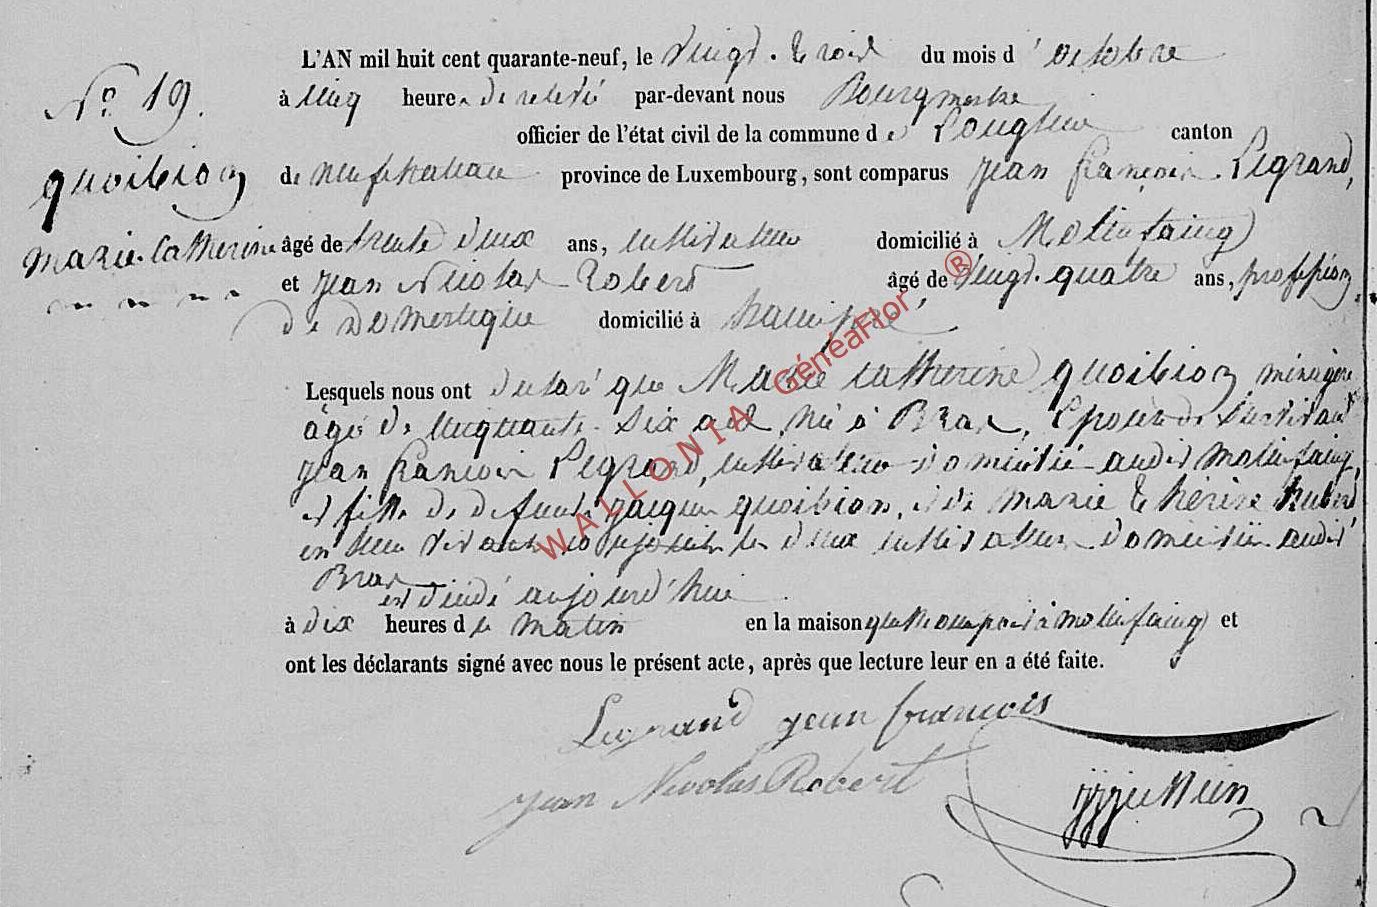 L'AN mil huit cent quarante-neuf, le vingt-trois du mois d'octobre
N° 19.
à cinq heures de relevé par-devant nous Bourgmestre
officier de l'état civil de la commune de Longlier canton
quoibion
de neufchateau province de Luxembourg, sont comparus jean françois Legrand,
marie-catherine
âgé de trente deux ans, cultivateur domicilié à Molinfaing
et jean Nicolas Robert âgé de vingt-quatre ans, profession
de domestique domicilié à
Lesquels nous ont declaré que Marie catherine quoibion ménagère
âgé de cinquante-six ans, né à Bras, Epouse de survivant
jean francois Legrand, cultivateur domicilié audit molinfaing,
et fille de defunts jacques quoibion, et de marie thérèse hubert
en leur vivant conjoints les deux cultivateurs domiciliés audit
Bras est décédé aujourd'hui
à dix heures du matin en la maison qu'elle occupoit à molinfaing et
ont les déclarants signé avec nous le présent acte, après que lecture leur en a été faite.
Legrand jean francois
jean Nicolas Robert
WALLONIA GénéaFlor ®